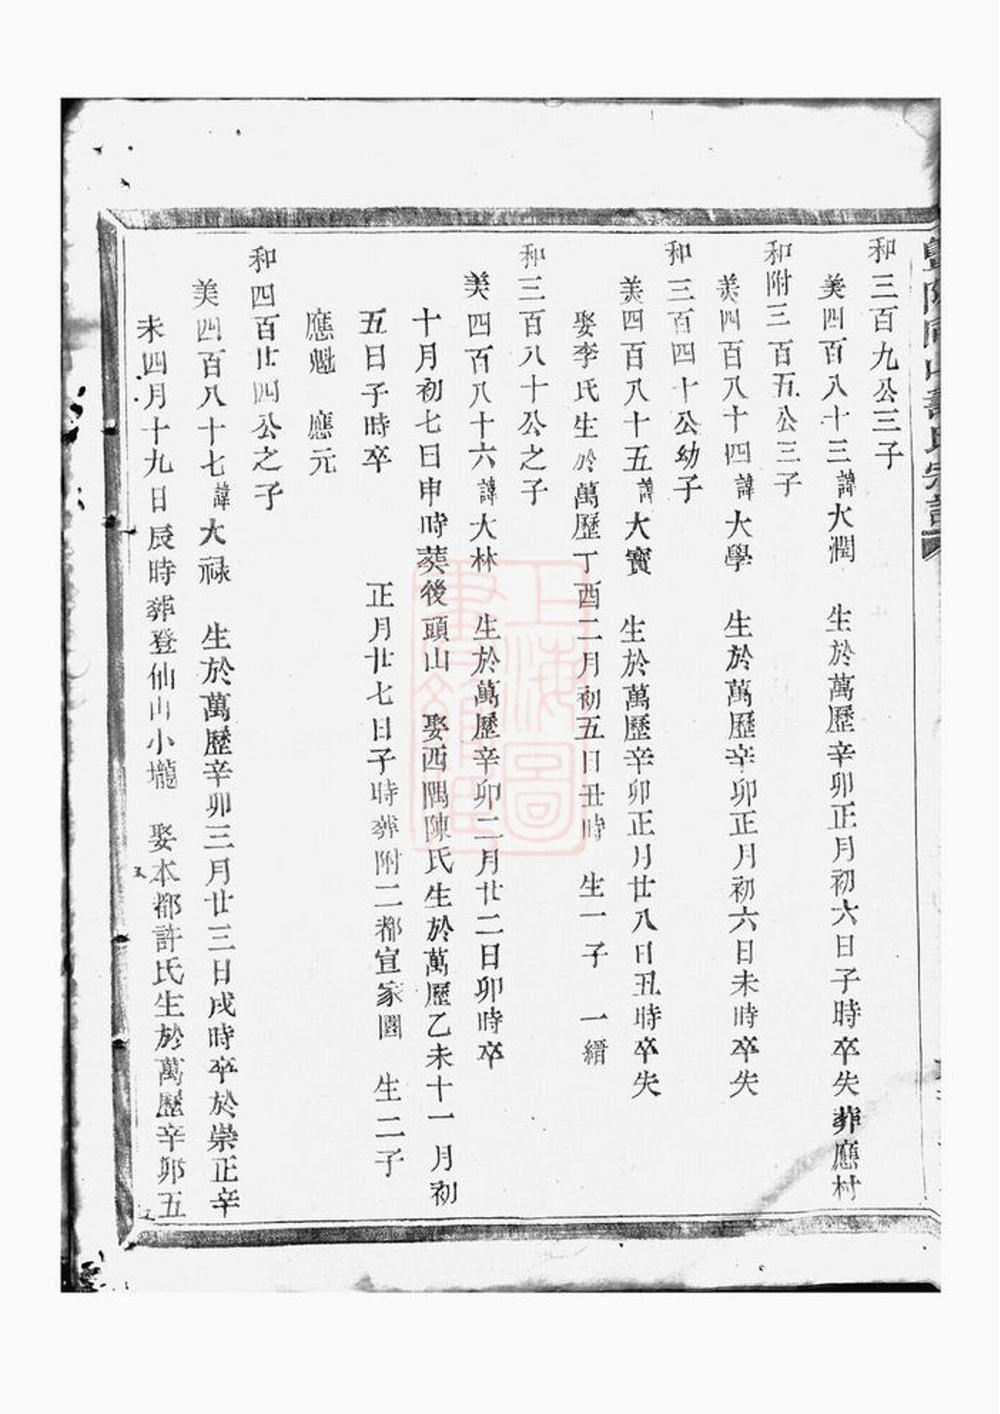 和三百九公三子
美四百八十三諱大潤　生於萬歷辛卯正月初六日子時卒失葬應村
和附三百五公三子
美四百八十四諱大學　生於萬歷辛卯正月初六日未時卒失
和三百四十公幼子
美四百八十五諱大寳　生於萬歷辛卯正月廿八日丑時卒失
娶李氏生於萬歷丁酉二月初五日丑時　生一子　一縉
和三百八十公之子
美四百八十六諱大林　生於萬歷辛卯二月廿二日卯時卒
十月初七日申時葬後頭山　娶西隅陳氏生於萬歷乙未十一月初
五日子時卒　　正月廿七日子時葬附二都宣家園　生二子
應魁　應元
和四百廿四公之子
美四百八十七諱大祿　生於萬歷辛卯三月廿三日戌時卒於崇正辛
未四月十九日辰時葬登仙山小壠　娶本都許氏生於萬歷辛卯五
上海圖書館藏